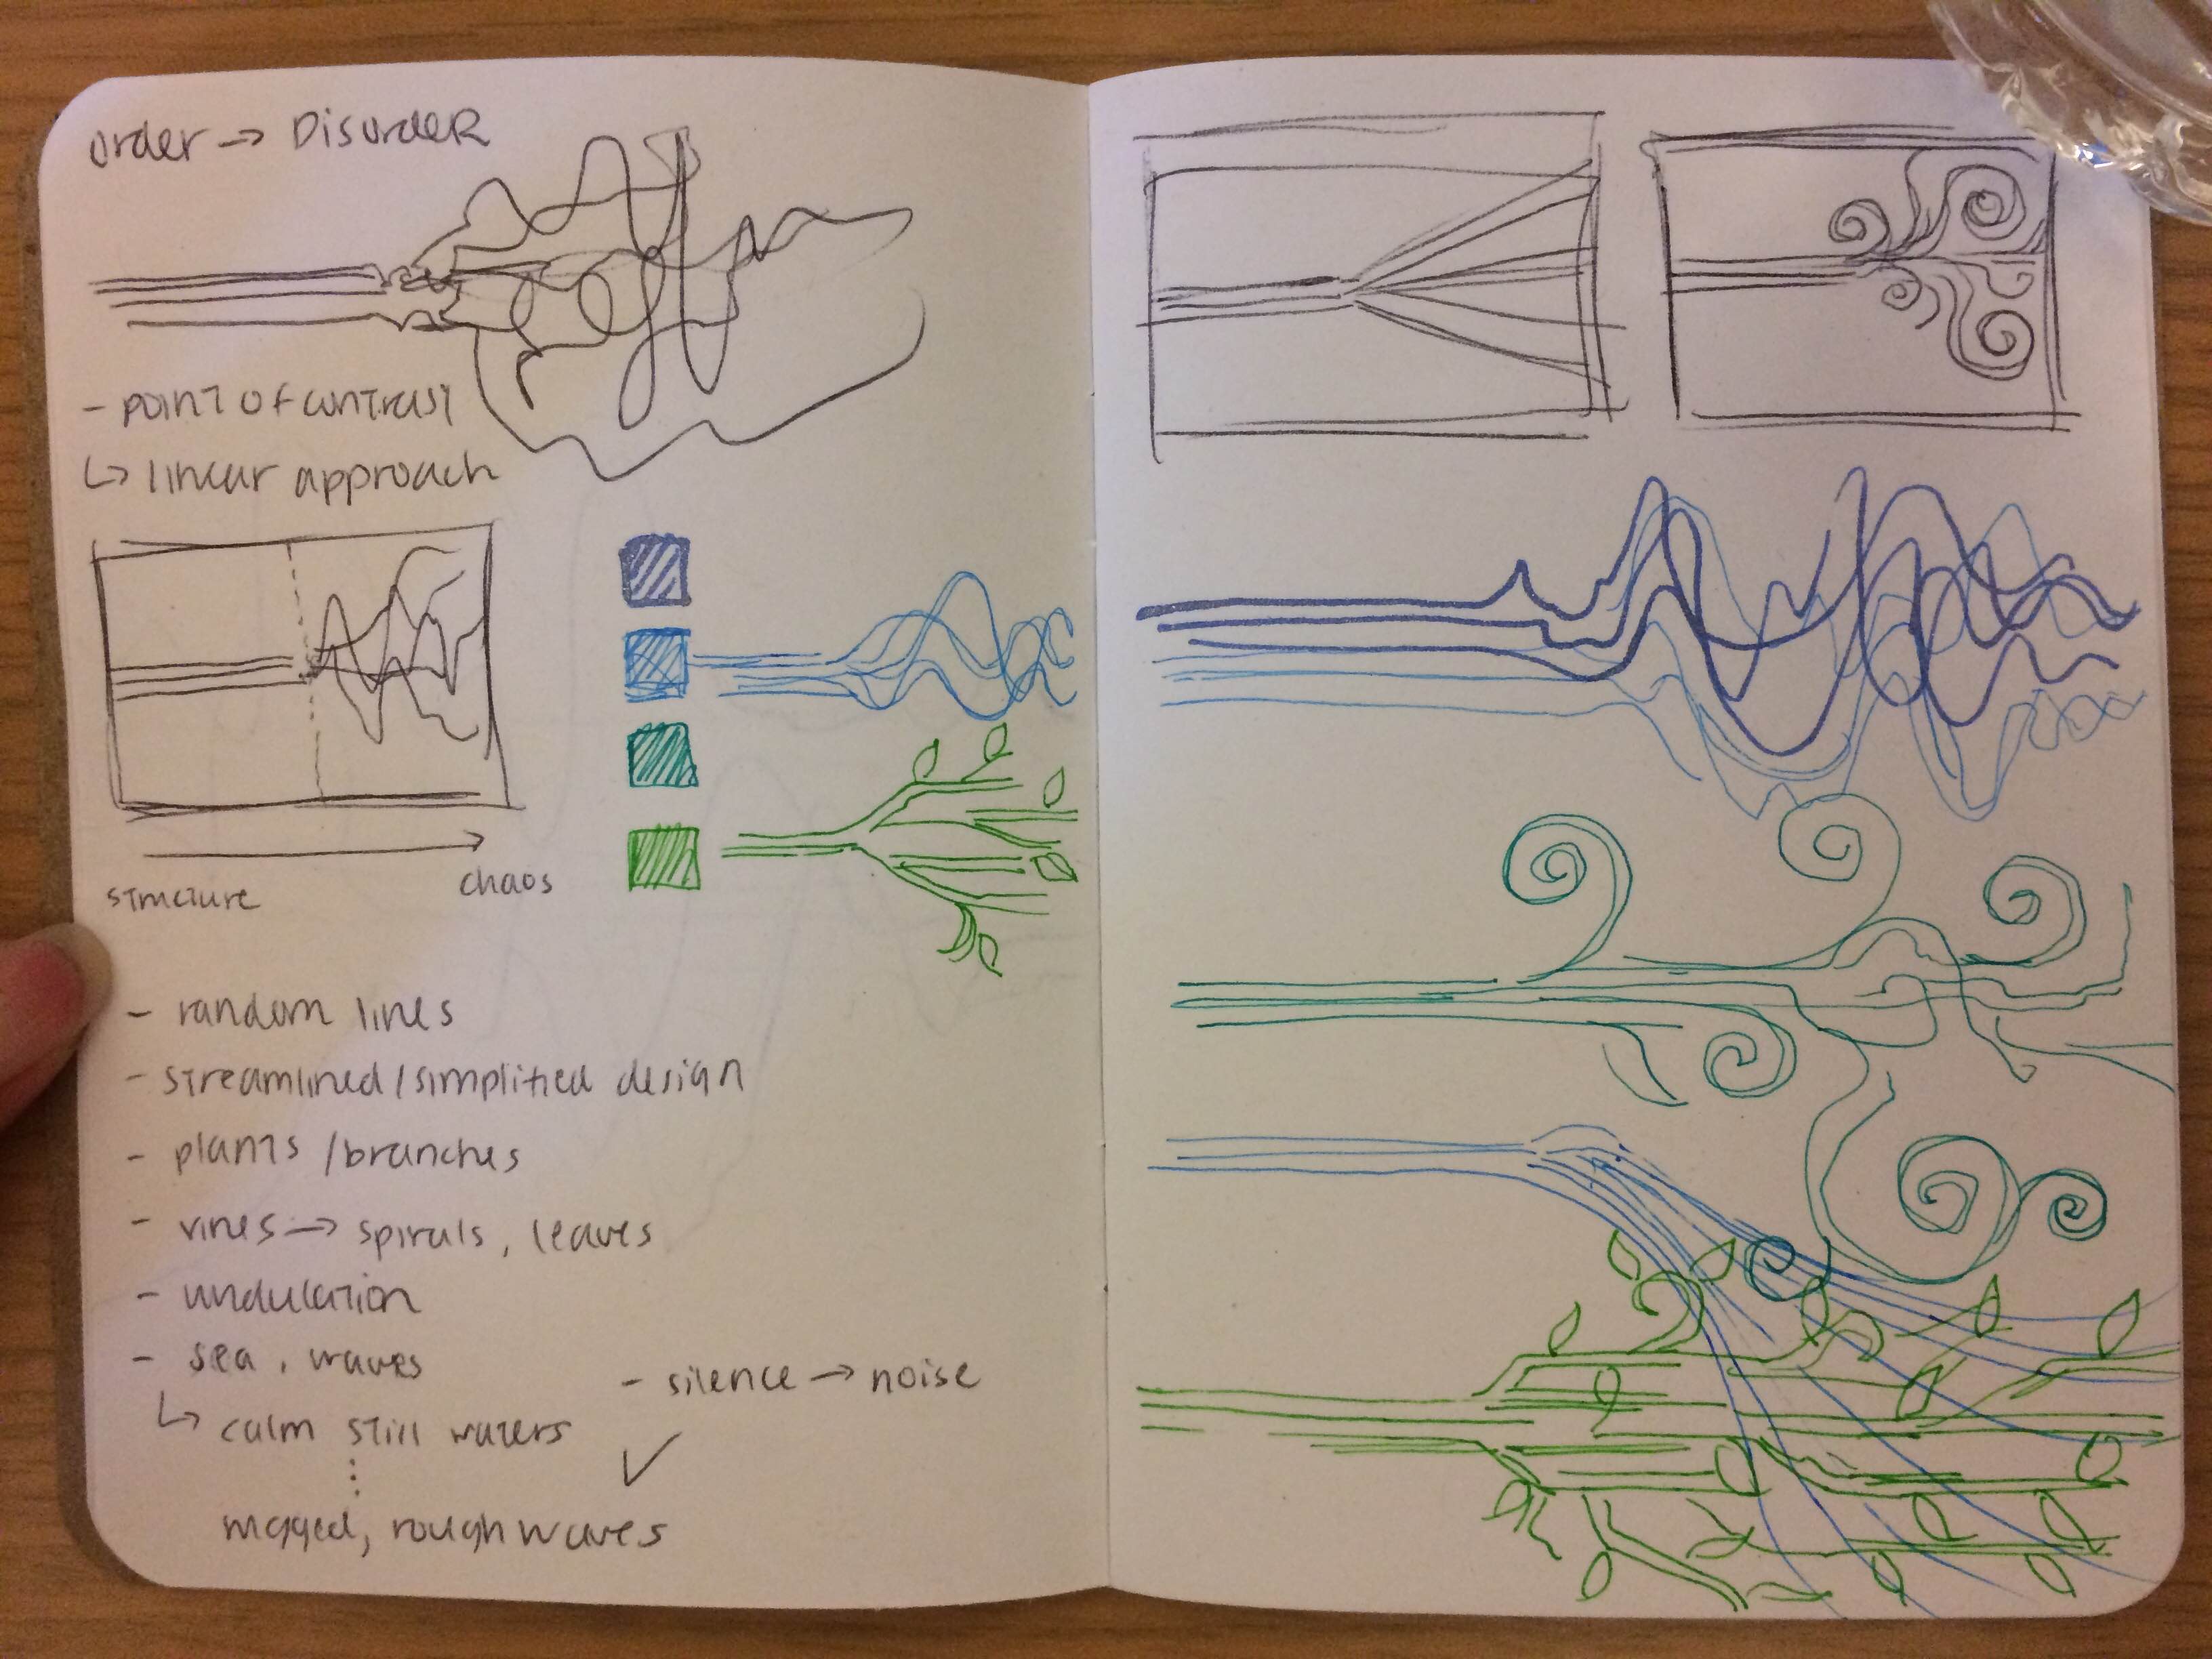 order → DisordeR
- point of contrast
↳ linear approach
structure
chaos
- random lines
- streamlined/simplified design
- plants /branches
- vines → spirals, leaves
- undulation
- sea, waves
↳ calm still waters
rough waves
- silence → noise